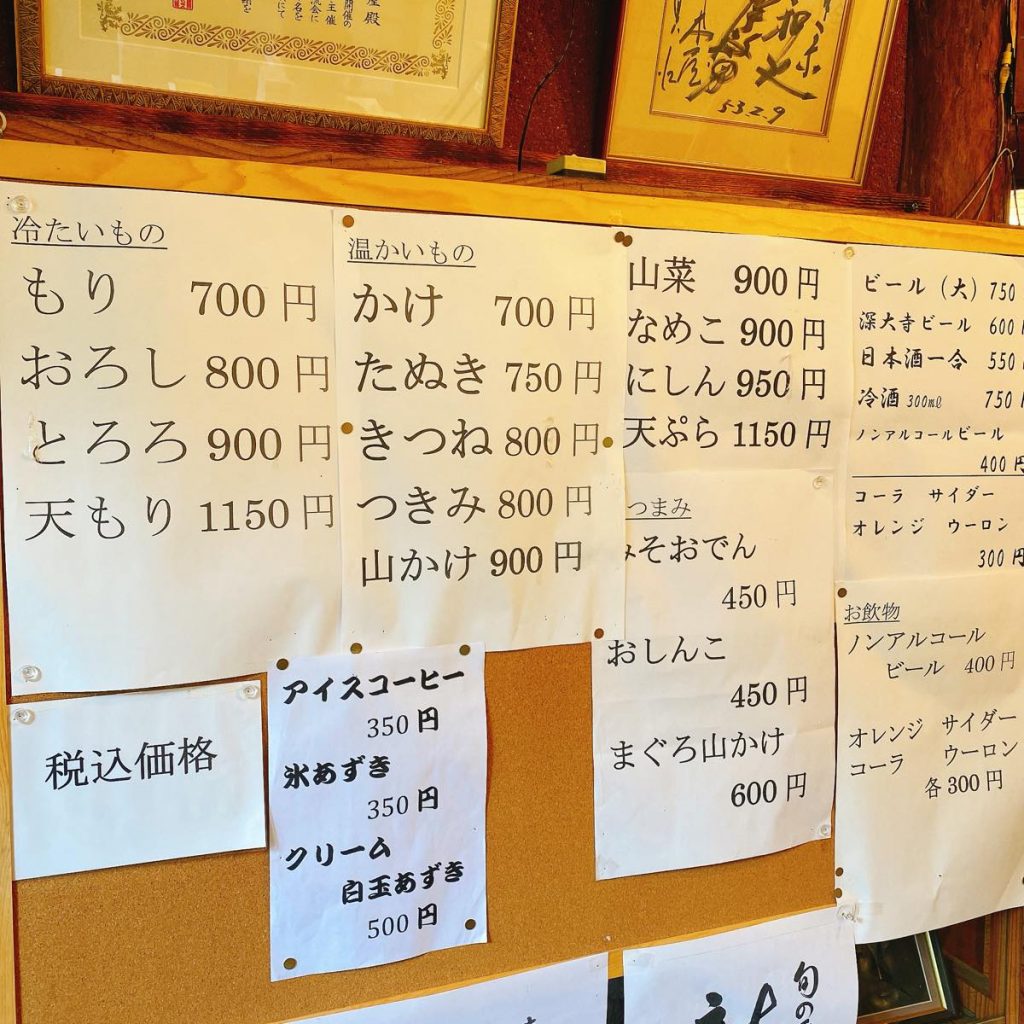 冷たいもの
もり 700円
おろし 800円
とろろ 900円
天もり 1150円
温かいもの
かけ 700円
たぬき 750円
きつね 800円
つきみ 800円
山かけ 900円
山菜 900円
なめこ 900円
にしん 950円
天ぷら 1150円
つまみ
みそおでん
450円
おしんこ
450円
まぐろ山かけ
600円
ビール(大) 750
深大寺ビール 600
日本酒一合 550
冷酒 300㎖ 750
ノンアルコールビール
400円
コーラ サイダー
オレンジ ウーロン
300円
お飲物
ノンアルコール
ビール 400円
オレンジ サイダー
コーラ ウーロン
各300円
税込価格
アイスコーヒー
350円
氷あずき
350円
クリーム
白玉あずき
500円
53.2.9
旬の